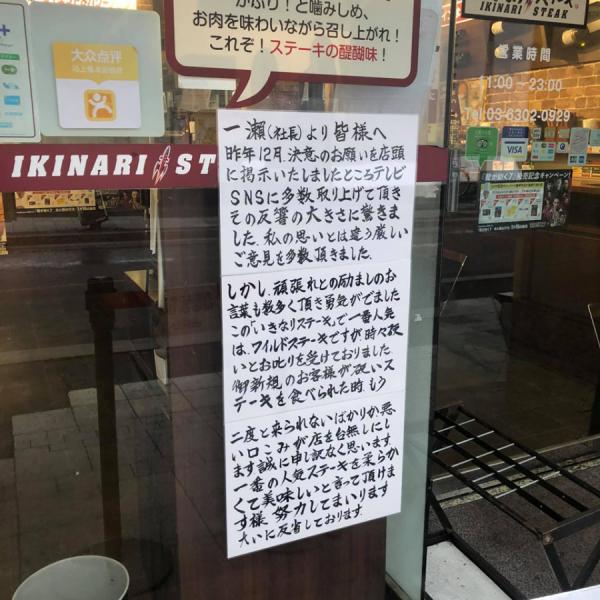 がぶり！と噛みしめ、
お肉を味わいながら召し上がれ！
これぞ！ステーキの醍醐味！
IKINARI STEAK
営業時間
11:00～23:00
Tel. 03-6302-0929
大众点评
VISA
IKINARI ST
一瀬(社長)より皆様へ
昨年12月、決意のお願いを店頭
に掲示いたしましたところテレビ
SNSに多数取り上げて頂き
その反響の大きさに驚きま
した、私の思いとは違う厳しい
ご意見を多数頂きました。
しかし、頑張れとの励ましのお
言葉も数多く頂き勇気がでました
この「いきなりステーキ」で一番人気
は、ワイルドステーキですが、時々硬
いとお叱りを受けておりました
御新規のお客様が硬いス
テーキを食べられた時もう
二度と来られないばかりか悪
い口こみが店を台無しにし
ます誠に申し訳なく思います
一番の人気ステーキを柔らか
くて美味しいと言って頂けま
す様、努力してまいります
大いに反省しております。